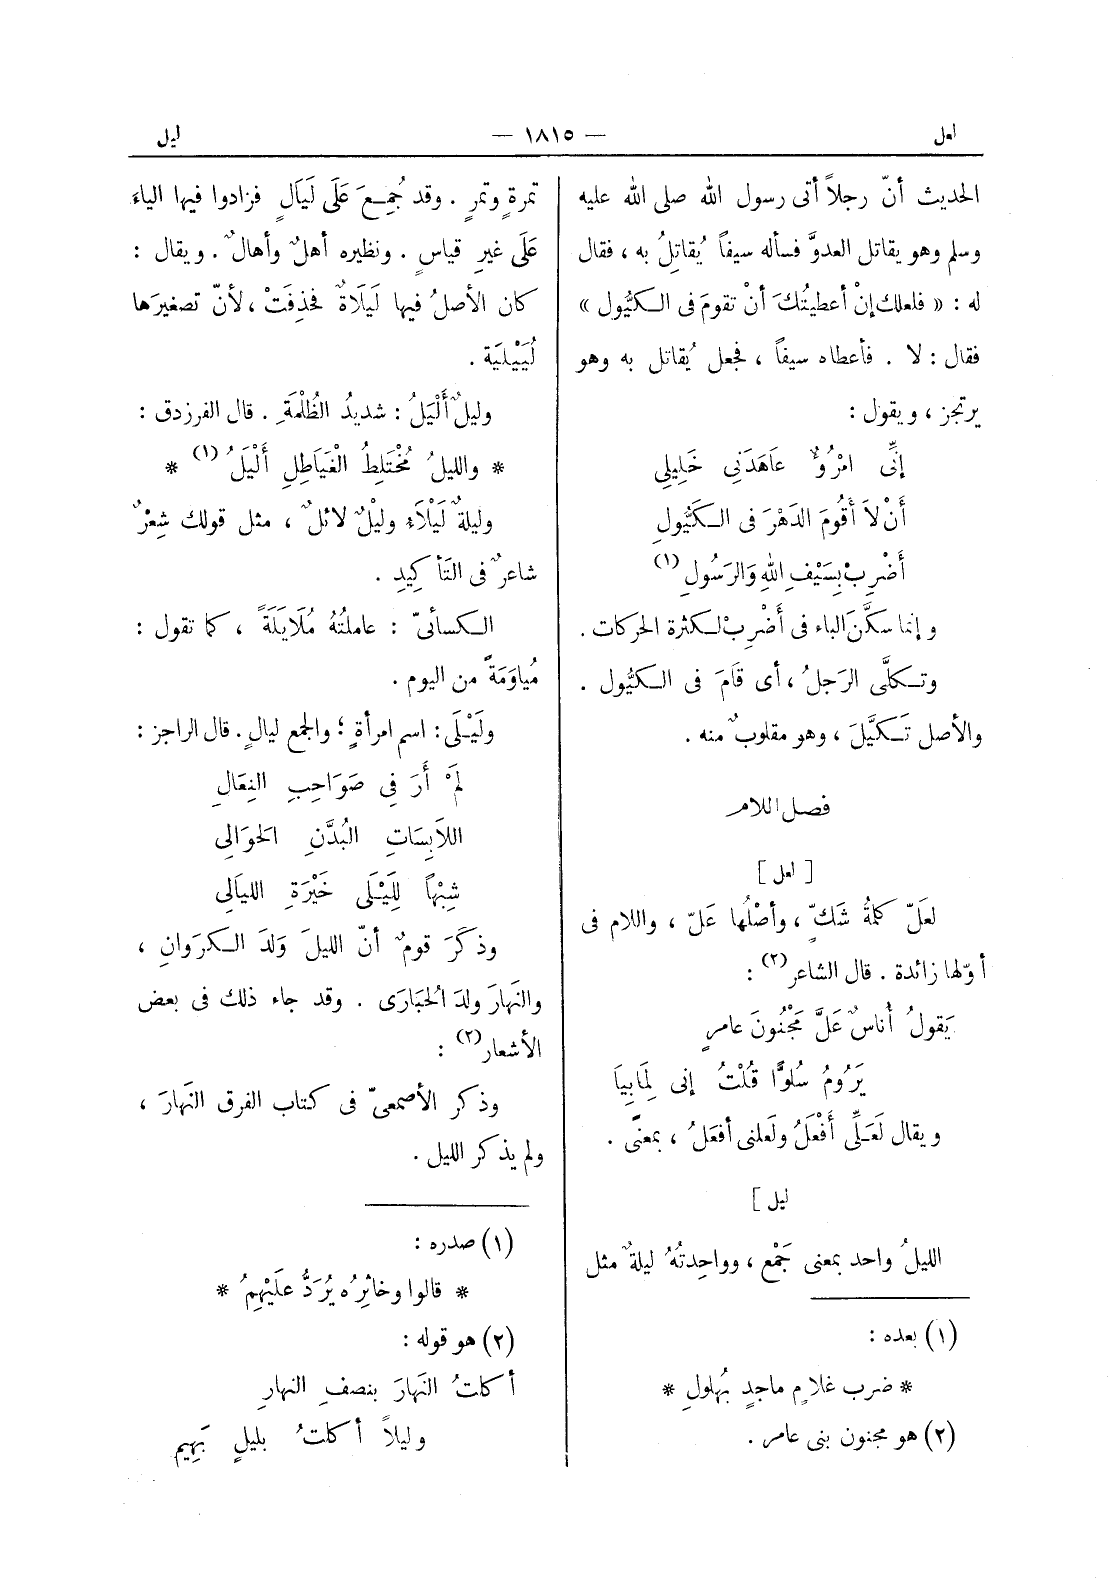 لعل
— ١٨١٥ —
ليل
الحديث أنّ رجلاً أتى رسول الله صلى الله عليه
وسلم وهو يقاتل العدوَّ فسأله سيفاً يُقاتِلُ به ، فقال
له : « فلعلك إنْ أعطيتُكَ أنْ تقومَ فى الكَيُّول »
فقال : لا . فأعطاه سيفاً ، فجعل يُقاتل به وهو
يرتجز ، ويقول :
إنِّى امْرُؤٌ عَاهَدَنِى خَلِيلِى
أَنْ لاَ أَقُومَ الدَهْرَ فى الكَيُّولِ
أَضْرِبْ بِسَيْفِ اللهِ وَالرَسُولِ (١)
وإنما سكَّنَ الباء فى أَضْرِبْ لكثرة الحركات .
وتكلَّى الرَجلُ ، أى قَامَ فى الكيُّول .
والأصل تَكَيَّلَ ، وهو مقلوبٌ منه .
فصل اللام
[ لعل ]
لعَلّ كلمةُ شَكٍّ ، وأصْلُها عَلّ ، واللام فى
أوّلها زائدة . قال الشاعر (٢) :
يَقولُ أُناسٌ عَلَّ مَجْنُونَ عامرٍ
يَرَُومُ سُلوًّا قُلْتُ إنى لِمَا بِيَا
ويقال لَعَلِّى أَفْعَلُ ولَعلنى أفعَلُ ، بمعنًى .
ليل ]
الليلُ واحد بمعنى جَمْع ، وواحِدتُهُ ليلةٌ مثل
(١) بعده :
* ضرب غلامٍ ماجدٍ بُهلولِ *
(٢) هو مجنون بنى عامر .
تمرةٍ وتمرٍ . وقد جُمِعَ عَلَى لَيَالٍ فزادوا فيها الياءَ
عَلَى غيرِ قياسٍ . ونظيره أهلٌ وأهالٌ . ويقال :
كان الأصلُ فيها لَيَلَاةٌ فحذِفَتْ ، لأنّ تصغيرَها
لُيَيْلِيَة .
وليلٌ أَلْيَلُ : شديدُ الظُلْمَةِ . قال الفرزدق :
* والليلُ مُخْتَلِطُ الْغَيَاطِلِ أَلْيَلُ (١) *
وليلةٌ لَيْلَاءِ وليْلٌ لائلٌ ، مثل قولك شِعْرٌ
شاعرٌ فى التَأكِيدِ .
الكسائىّ : عاملتُهُ مُلَايَلَةً ، كما تقول :
مُياوَمَةً من اليوم .
ولَيْلَى : اسم امرأةٍ ؛ والجمع ليالٍ . قال الراجز :
لَمْ أَرَ فِى صَوَاحِبِ النِعَالِ
اللاَبِسَاتِ البُدَّنِ الحَوَالِى
شِبْهاً لِلَيْلَى خَيْرَةِ الليَالِى
وذكَرَ قومٌ أنّ الليلَ وَلَدَ الكروانِ ،
والنَهارَ ولدَ الحُبَارَى . وقد جاء ذلك فى بعض
الأشعار (٢) :
وذكر الأصمعىّ فى كتاب الفرق النَهارَ ،
ولم يذكر الليل .
(١) صدره :
* قالوا وخاثِرُه يُرَدُّ عَلَيْهِمُ *
(٢) هو قوله :
أكلتُ النَهارَ بنصفِ النهارِ
وليلاً أكلتُ بليلٍ بَهِيم